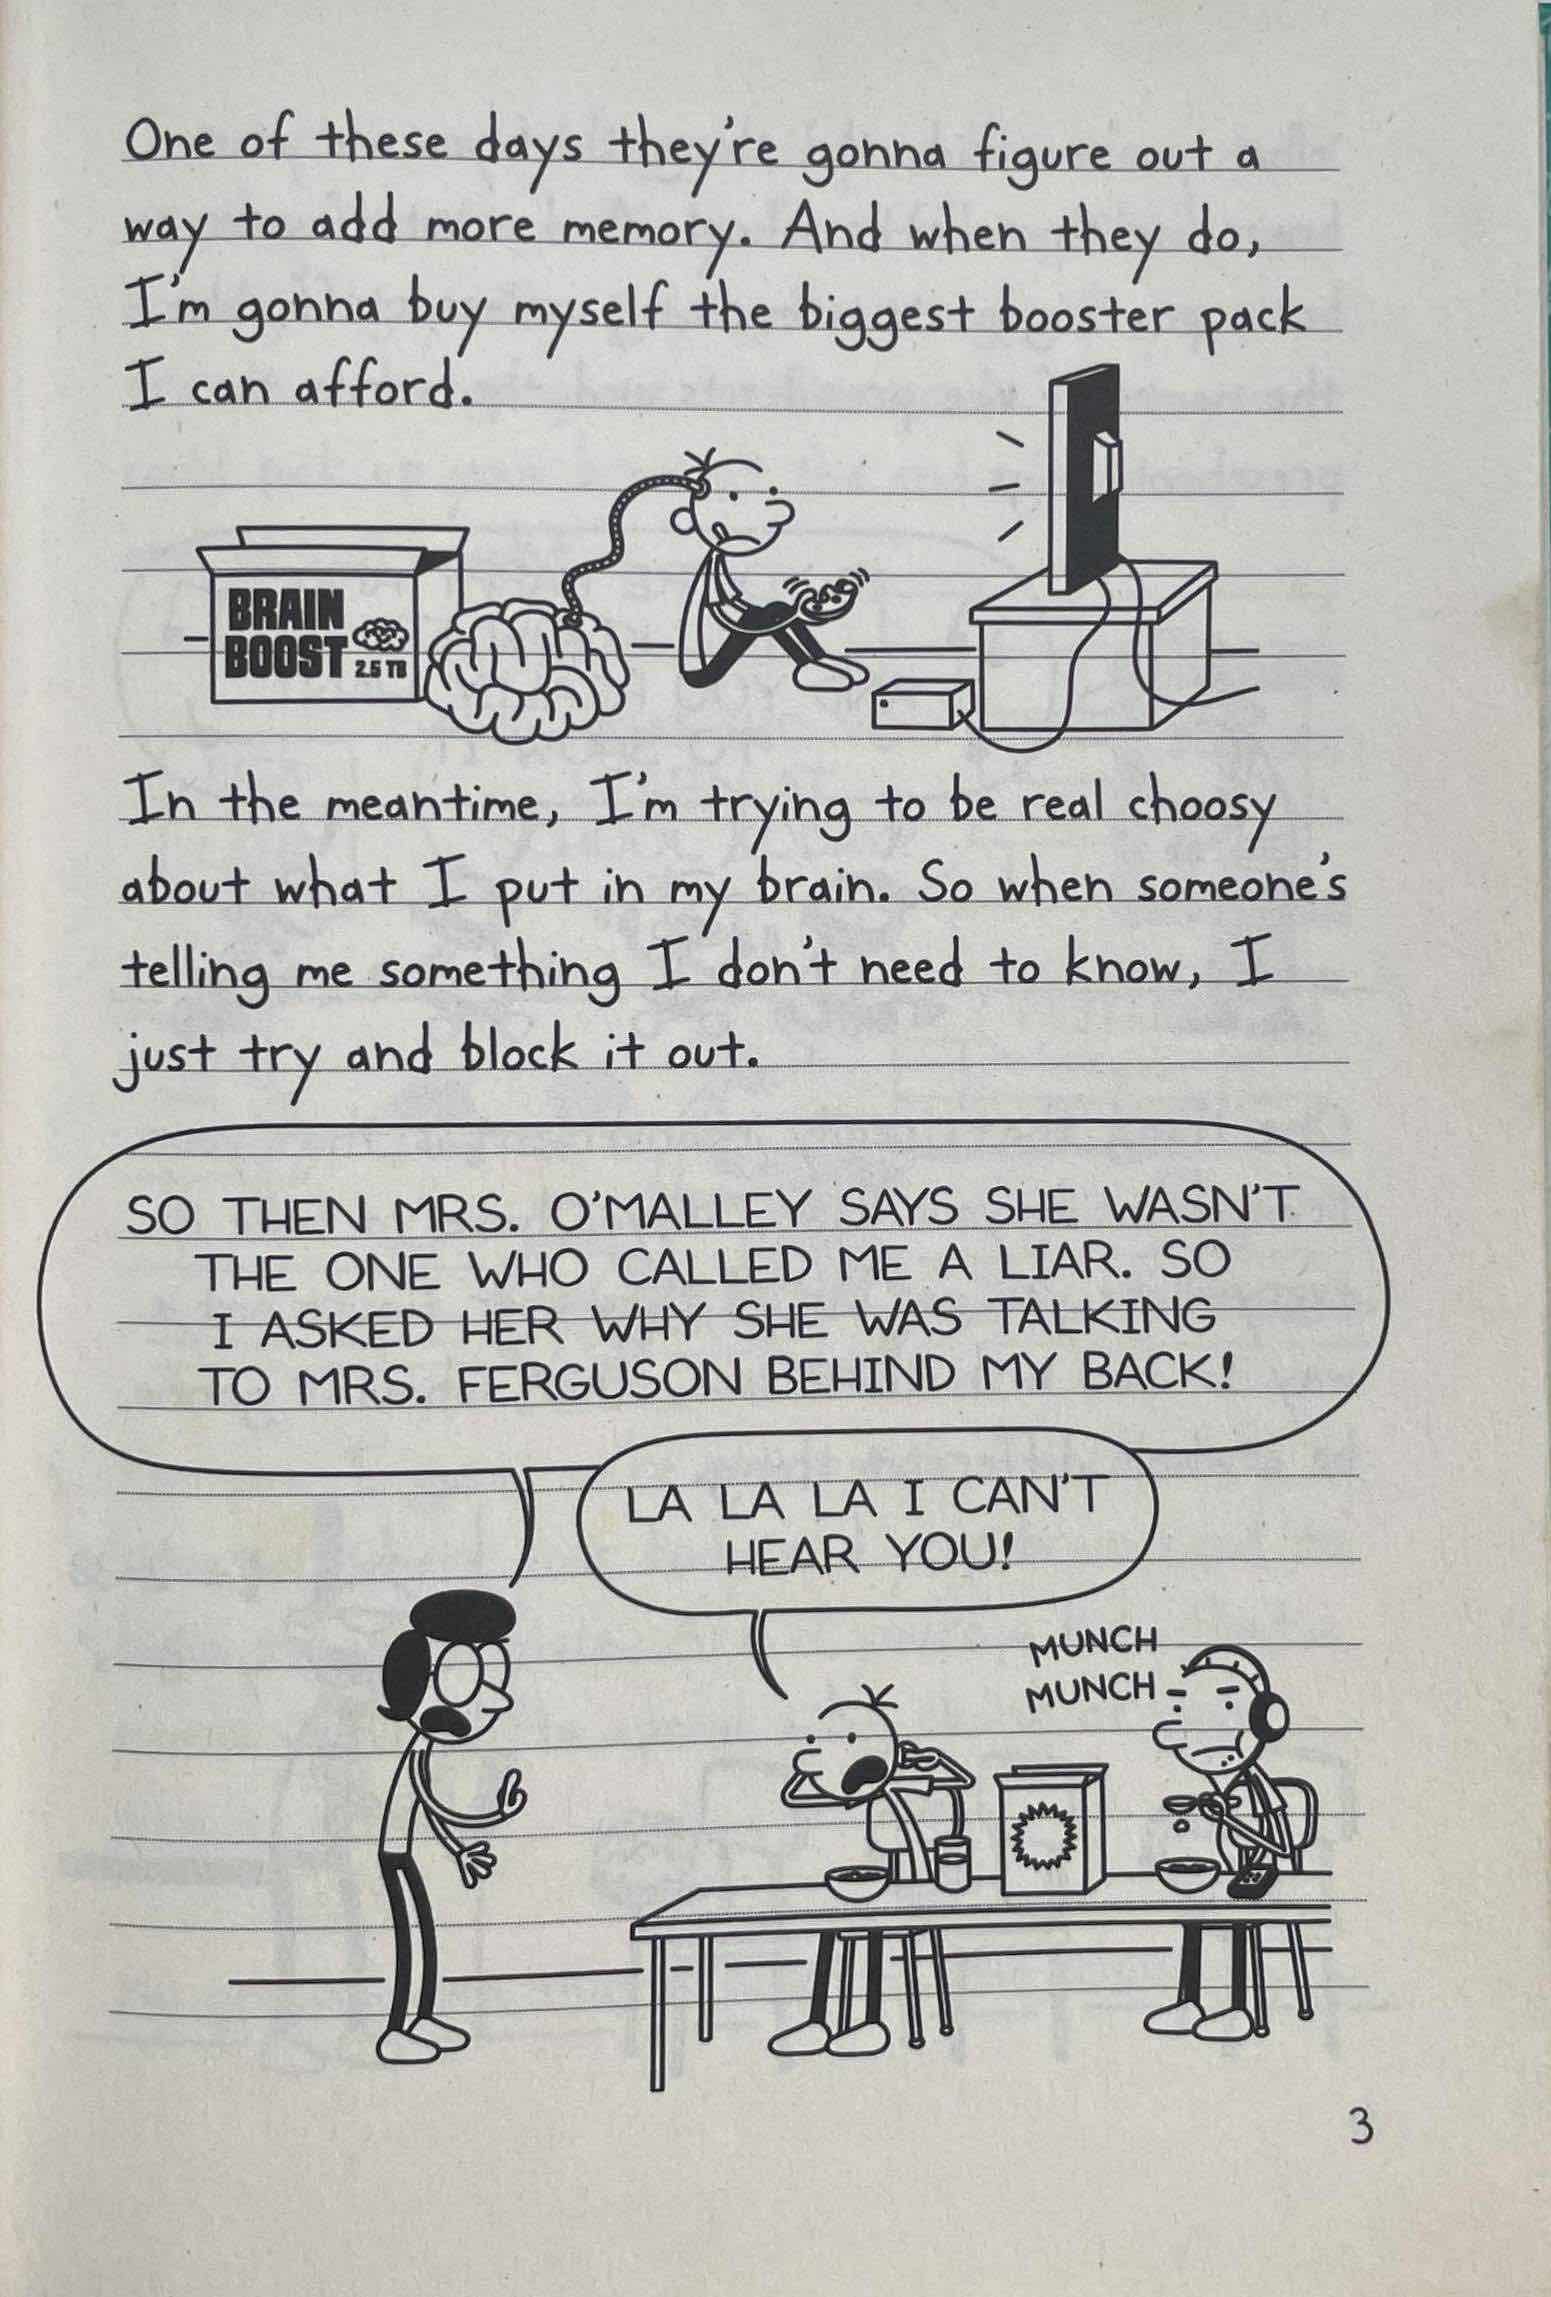 One of these days they're gonna figure out a
way to add more memory. And when they do,
I'm gonna buy myself the biggest booster pack
I can afford.
BRAIN
BOOST
2.5 TB
In the meantime, I'm trying to be real choosy
about what I put in my brain. So when someone's
telling me something I don't need to know, I
just try and block it out.
SO THEN MRS. O'MALLEY SAYS SHE WASN'T
THE ONE WHO CALLED ME A LIAR. SO
I ASKED HER WHY SHE WAS TALKING
TO MRS. FERGUSON BEHIND MY BACK!
LA LA LA I CAN'T
HEAR YOU!
MUNCH
MUNCH
3